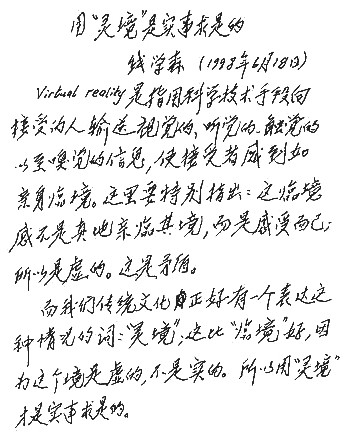 用“灵境”是实事求是的
钱学森 (1998年6月18日)
Virtual reality 是指用科学技术手段向
接受的人输送视觉的、听觉的、触觉的
以至嗅觉的信息，使接受者感到如
亲身临境。这里要特别指出：这临境
感不是真地亲临其境，而是感受而已；
所以是虚的。这是矛盾。
而我们传统文化正好有一个表达这
种情况的词：“灵境”；这比“临境”好，因
为这个境是虚的，不是实的。所以用“灵境”
才是实事求是的。